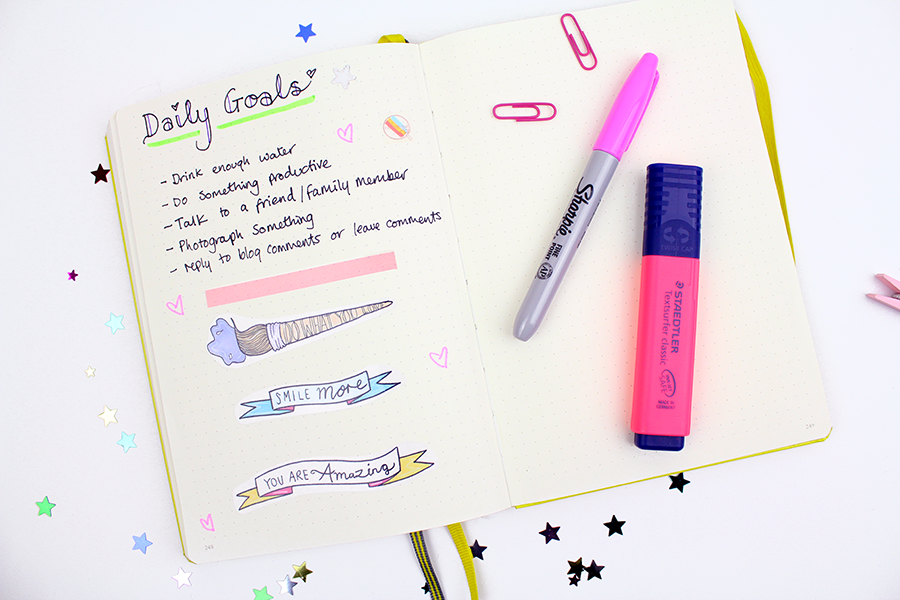 Daily Goals
- Drink enough water
- Do something productive
- Talk to a friend/family member
- Photograph something
- reply to blog comments or leave comments
DO WHAT YOU
SMILE MORE
YOU ARE Amazing
Sharpie
FINE POINT
AP
STAEDTLER
Textsurfer classic
INK JET SAFE
MADE IN GERMANY